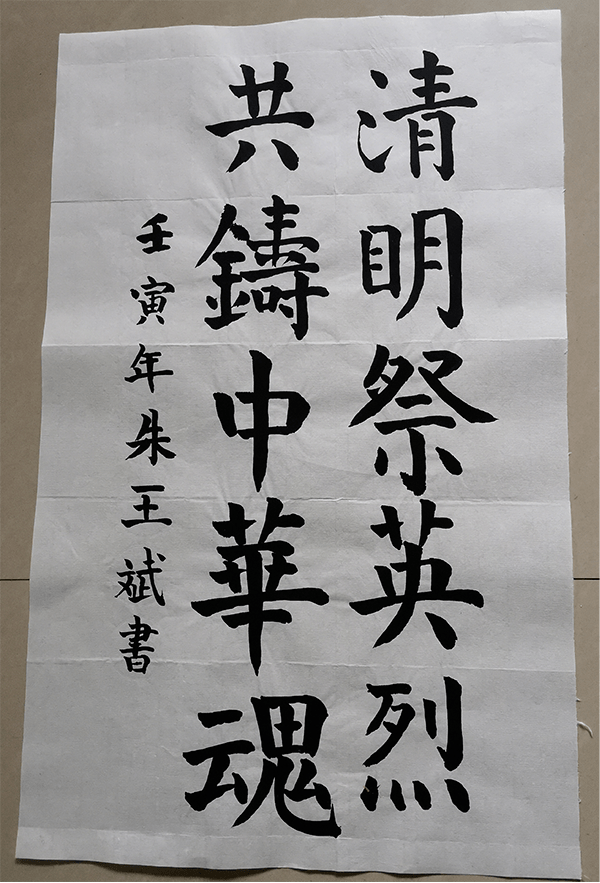 清明祭英烈
共鑄中華魂
壬寅年朱王斌書